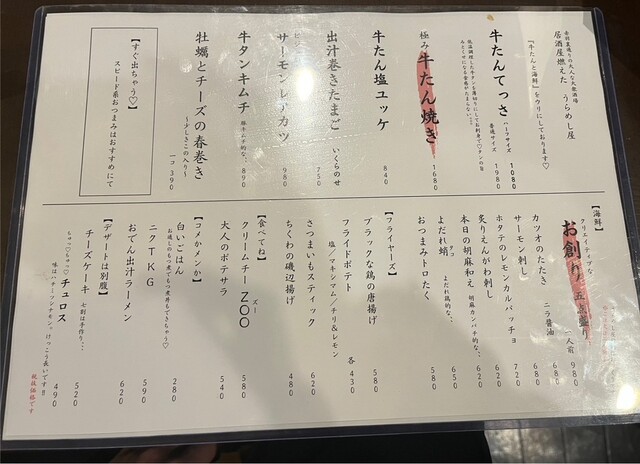 赤羽裏通りの大人な大衆酒場
居酒屋燃えた うらめし屋
『牛たんと海鮮』をウリにしております♡
牛たんてっさ
ハーフサイズ 1080
普通サイズ 1980
極み牛たん焼き 1680
牛たん塩ユッケ 840
出汁巻きたまご いくらのせ 750
サーモンレアカツ 980
牛タンキムチ 豚キムチ的な、、 890
牡蠣とチーズの春巻き
〜少しさきこの入り〜
一コ 390
【すぐ出ちゃう♡】
スピード系おつまみはおすすめにて
【海鮮】
クリエイティブな
お創れた五点盛り 二人前 980
カツオのたたき ニラ醤油 680
サーモン刺し 620
ホタテのレモンカルパッチョ 720
炙りえんがわ刺し 620
本日の胡麻和え 胡麻カンパチ的な、、 650
よだれ蛸 よだれ鶏的な、、 650
タコ
おつまみトロたく 580
【フライヤーズ】
ブラックな鶏の唐揚げ 580
フライドポテト
塩/マキシマム/チリ&レモン 各 430
さつまいもスティック 620
ちくわの磯辺揚げ 480
【食べてね】
クリームチーZOO 580
ズー
大人のポテサラ 540
【コメかメンか】
白いごはん 280
お通しのもつ煮でもつ煮丼もできちゃう♡
ニクTKG 590
おでん出汁ラーメン 620
【デザートは別腹】
チーズケーキ 七割は手作り、、、 520
ちゅっ♡ちゅっ♡ チュロス 490
味はハチーツシナモンっ けっこう長いです!!
税抜価格です